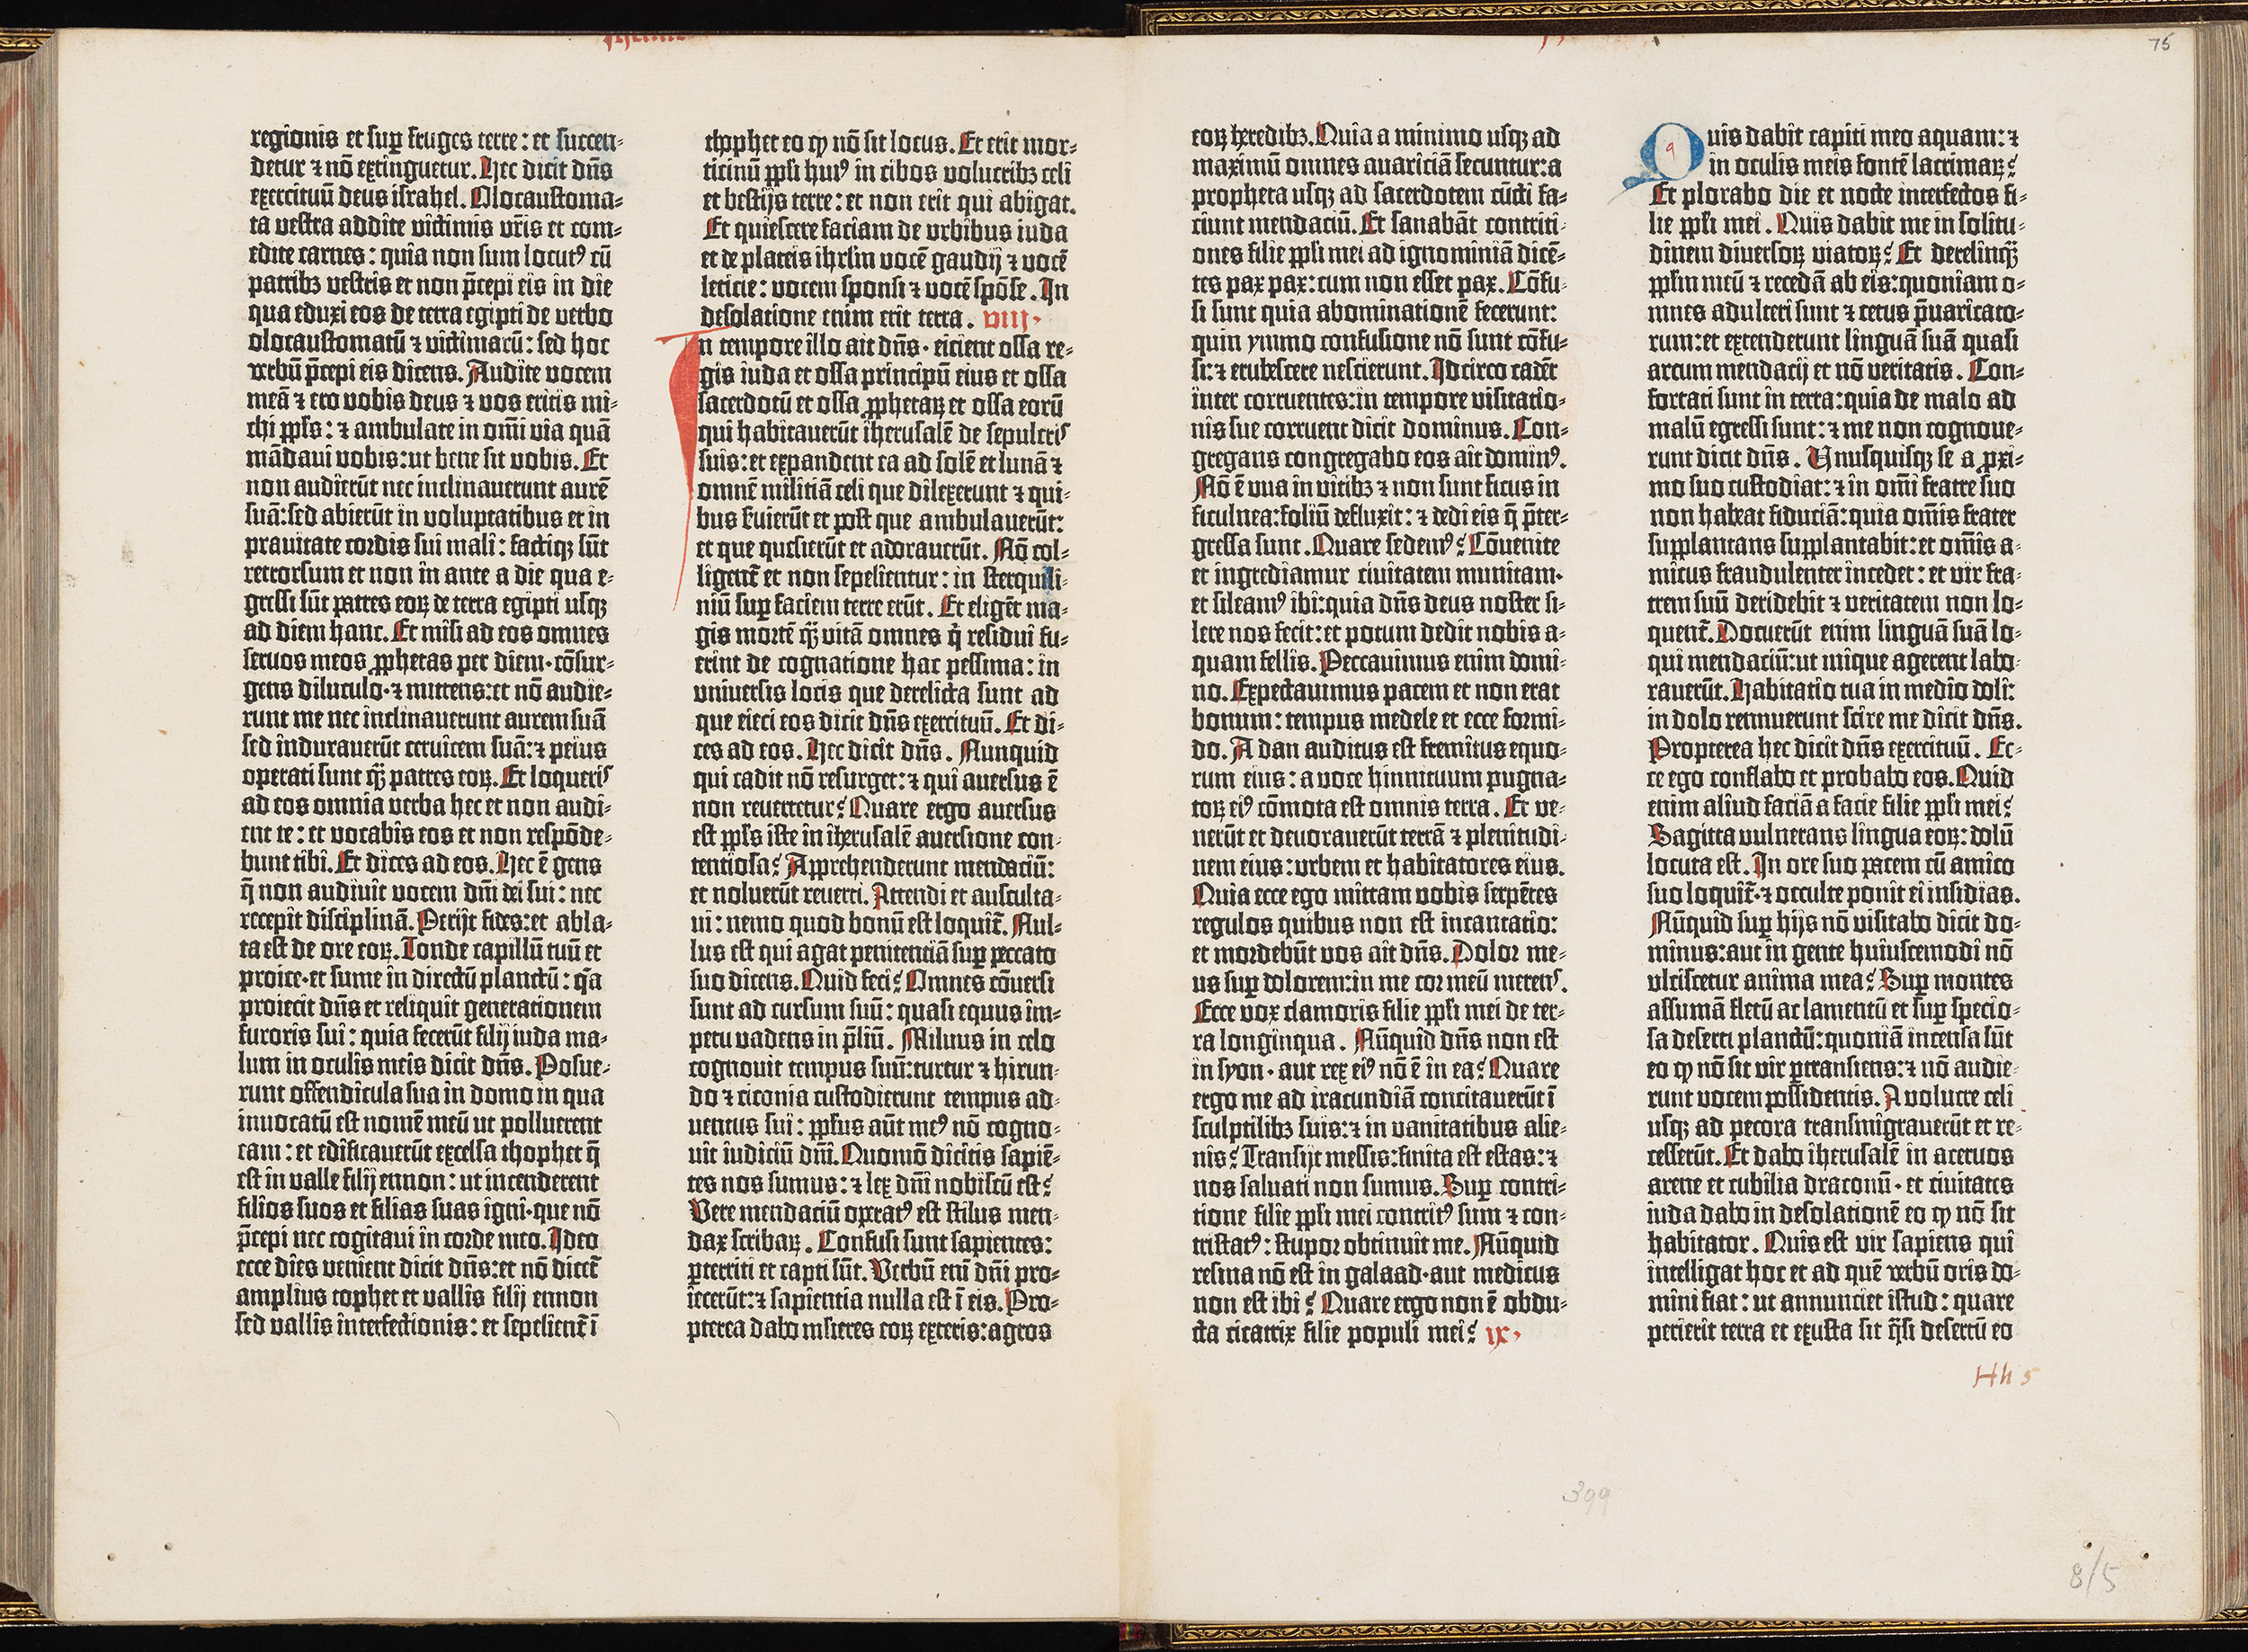 75
regionis et ſuꝑ fruges terre: et ſuccen-
detur ⁊ nō extinguetur. Hec dicit dn̄s
exercituū deus iſrahel. Olocauſtoma-
ta veſtra addite victimis vr̄is et com-
edite carnes: quia non ſum locutꝰ cū
patribꝫ veſtris et non p̄cepi eis in die
qua eduxi eos de terra egipti de verbo
olocauſtomatū ⁊ victimarū: ſed hoc
verbū p̄cepi eis dicens. Audite vocem
meā ⁊ ero vobis deus ⁊ vos eritis mi-
chi ppl̄s: ⁊ ambulate in om̄i via quā
mādaui vobis: ut bene ſit vobis. Et
non audierūt nec inclinauerunt aurē
ſuā: ſed abierūt in voluptatibus et in
prauitate cordis ſui mali: factiqꝫ ſūt
retrorſum et non in ante a die qua e-
greſſi ſūt patres eoꝝ de terra egipti uſqꝫ
ad diem hanc. Et miſi ad eos omnes
ſeruos meos ꝓphetas per diem· cōſur-
gens diluculo· ⁊ mittens: et nō audie-
runt me nec inclinauerunt aurem ſuā
ſed indurauerūt ceruicem ſuā: ⁊ peius
operati ſunt qͣꝫ patres eoꝝ. Et loqueris
ad eos omnia verba hec et non audi-
ent te: et vocabis eos et non reſpōde-
bunt tibi. Et dices ad eos. Hec ē gens
q̄ non audiuit vocem dn̄i dei ſui: nec
recepit diſciplinā. Perijt fides: et abla-
ta eſt de ore eoꝝ. Tonde capillū tuū et
proice· et ſume in directū planctū: qͣa
proiecit dn̄s et reliquit generationem
furoris ſui: quia fecerūt filij iuda ma-
lum in oculis meis dicit dn̄s. Poſue-
runt offendicula ſua in domo in qua
inuocatū eſt nomē meū ut polluerent
eam: et edificauerūt excelſa thophet q̄
eſt in valle filij ennon: ut incenderent
filios ſuos et filias ſuas igni· que nō
p̄cepi nec cogitaui in corde meo. Ideo
ecce dies venient dicit dn̄s: et nō dicet̄
amplius tophet et vallis filij ennon
ſed vallis interfectionis: et ſepelient̄ ī
thophet eo ꝙ nō ſit locus. Et erit mor-
ticinū ppl̄i huiꝰ in cibos volucribꝫ celi
et beſtijs terre: et non erit qui abigat.
Et quieſcere faciam de vrbibus iuda
et de plateis ihrl̄m vocē gaudij ⁊ vocē
leticie: vocem ſponſi ⁊ vocē ſpōſe. In
deſolatione enim erit terra. VIII·
In tempore illo ait dn̄s· eicient oſſa re-
gis iuda et oſſa principū eius et oſſa
ſacerdotū et oſſa ꝓphetaꝝ et oſſa eorū
qui habitauerūt iheruſalē de ſepulcris
ſuis: et expandent ea ad ſolē et lunā ⁊
omnē militiā celi que dilexerunt ⁊ qui-
bus ſeruierūt et poſt que ambulauerūt:
et que queſierūt et adorauerūt. Nō col-
ligent̄ et non ſepelientur: in ſterquili-
niū ſuꝑ faciem terre erūt. Et eligēt ma-
gis mortē qͣꝫ vitā omnes q̇ reſidui fu-
erint de cognatione hac peſſima: in
vniuerſis locis que derelicta ſunt ad
que eieci eos dicit dn̄s exercituū. Et di-
ces ad eos. Hec dicit dn̄s. Nunquid
qui cadit nō reſurget: ⁊ qui auerſus ē
non reuertetur? Quare ergo auerſus
eſt ppl̄s iſte in iheruſalē auerſione con-
tentioſa? Apprehenderunt mendaciū:
et noluerūt reuerti. Attendi et auſculta-
ui: nemo quod bonū eſt loquit̄. Nul-
lus eſt qui agat penitentiā ſuꝑ peccato
ſuo dicens. Quid feci? Omnes cōuerſi
ſunt ad curſum ſuū: quaſi equus im-
petu vadens in p̄liū. Miluus in celo
cognouit tempus ſuū: turtur ⁊ hirun-
do ⁊ ciconia cuſtodierunt tempus ad-
uentus ſui: ppl̄us aūt meꝰ nō cogno-
uit iudiciū dn̄i. Quomō dicitis ſapiē-
tes nos ſumus: ⁊ lex dn̄i nobiſcū eſt?
Vere mendaciū operatꝰ eſt ſtilus men-
dax ſcribaꝝ. Confuſi ſunt ſapientes:
ꝑterriti et capti ſūt. Verbū eni̅ dn̄i pro-
iecerūt: ⁊ ſapientia nulla eſt ī eis. Pro-
pterea dabo mlieres eoꝝ exteris: agros
eoꝝ heredibꝫ. Quia a minimo uſqꝫ ad
maximū omnes auariciā ſecuntur: a
propheta uſqꝫ ad ſacerdotem cūcti fa-
ciunt mendaciū. Et ſanabāt contriti-
ones filie ppl̄i mei ad ignominiā dicē-
tes pax pax: cum non eſſet pax. Cōfu-
ſi ſunt quia abominationē fecerunt:
quin ymmo confuſione nō ſunt cōfu-
ſi: ⁊ erubeſcere neſcierunt. Idcirco cadēt
inter corruentes: in tempore viſitatio-
nis ſue corruent dicit dominus. Con-
gregans congregabo eos ait dominꝰ.
Nō ē vua in vitibꝫ ⁊ non ſunt ficus in
ficulnea: foliū defluxit: ⁊ dedi eis q̄ p̄ter-
greſſa ſunt. Quare ſedemꝰ? Cōuenite
et ingrediamur ciuitatem munitam·
et ſileamꝰ ibi: quia dn̄s deus noſter ſi-
lere nos fecit: et potum dedit nobis a-
quam fellis. Peccauimus enim domi-
no. Expectauimus pacem et non erat
bonum: tempus medele et ecce formi-
do. A dan auditus eſt fremitus equo-
rum eius: a voce hinnituum pugna-
toꝝ eiꝰ cōmota eſt omnis terra. Et ve-
nerūt et deuorauerūt terrā ⁊ plenitudi-
nem eius: vrbem et habitatores eius.
Quia ecce ego mittam vobis ſerpētes
regulos quibus non eſt incantatio:
et mordebūt vos ait dn̄s. Dolor me-
us ſuꝑ dolorem: in me cor meū merens.
Ecce vox clamoris filie ppl̄i mei de ter-
ra longinqua. Nūquid dn̄s non eſt
in ſyon· aut rex eiꝰ nō ē in ea? Quare
ergo me ad iracundiā concitauerūt ī
ſculptilibꝫ ſuis: ⁊ in vanitatibus alie-
nis? Tranſijt meſſis: finita eſt eſtas: ⁊
nos ſaluati non ſumus. Suꝑ contri-
tione filie ppl̄i mei contritꝰ ſum ⁊ con-
triſtatꝰ: ſtupor obtinuit me. Nūquid
reſina nō eſt in galaad· aut medicus
non eſt ibi? Quare ergo non ē obdu-
cta cicatrix filie populi mei? IX·
Quis dabit capiti meo aquam: ⁊
in oculis meis fontē lacrimaꝝ?
Et plorabo die et nocte interfectos fi-
lie ppl̄i mei. Quis dabit me in ſolitu-
dinem diuerſoꝝ viatoꝝ? Et derelinqͣꝫ
ppl̄m meū ⁊ recedā ab eis: quoniam o-
mnes adulteri ſunt ⁊ cetus p̄uaricato-
rum: et extenderunt linguā ſuā quaſi
arcum mendacij et nō veritatis. Con-
fortati ſunt in terra: quia de malo ad
malū egreſſi ſunt: ⁊ me non cognoue-
runt dicit dn̄s. Vnuſquiſqꝫ ſe a ꝓxi-
mo ſuo cuſtodiat: ⁊ in om̄i fratre ſuo
non habeat fiduciā: quia om̄is frater
ſupplantans ſupplantabit: et om̄is a-
micus fraudulenter incedet: et vir fra-
trem ſuū deridebit ⁊ veritatem non lo-
quent̄. Docuerūt enim linguā ſuā lo-
qui mendaciū: ut inique agerent labo-
rauerūt. Habitatio tua in medio doli:
in dolo rennuerunt ſcire me dicit dn̄s.
Propterea hec dicit dn̄s exercituū. Ec-
ce ego conflabo et probabo eos. Quid
enim aliud faciā a facie filie ppl̄i mei?
Sagitta vulnerans lingua eoꝝ: dolū
locuta eſt. In ore ſuo pacem cū amico
ſuo loquit̄· ⁊ occulte ponit ei inſidias.
Nūquid ſuꝑ hijs nō viſitabo dicit do-
minus: aut in gente huiuſcemodi nō
vlciſcetur anima mea? Suꝑ montes
aſſumā fletū ac lamentū et ſuꝑ ſpecio-
ſa deſerti planctū: quoniā incenſa ſūt
eo ꝙ nō ſit vir ꝑtranſiens: ⁊ nō audie-
runt vocem poſſidentis. A volucre celi
uſqꝫ ad pecora tranſmigrauerūt et re-
ceſſerūt. Et dabo iheruſalē in aceruos
arene et cubilia draconū· et ciuitates
iuda dabo in deſolationē eo ꝙ nō ſit
habitator. Quis eſt vir ſapiens qui
intelligat hoc et ad quē verbū oris do-
mini fiat: ut annunciet iſtud: quare
perierit terra et exuſta ſit qͣſi deſertū eo
Hh 5
399
8/5